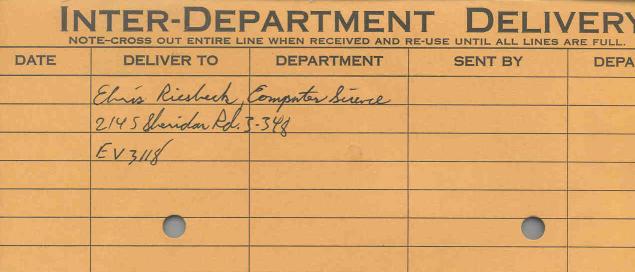 INTER-DEPARTMENT DELIVERY
NOTE-CROSS OUT ENTIRE LINE WHEN RECEIVED AND RE-USE UNTIL ALL LINES ARE FULL.
DATE DELIVER TO DEPARTMENT SENT BY DEPA
Chris Riesbeck, Computer Science
2145 Sheridan Rd. 3-348
EV 3118